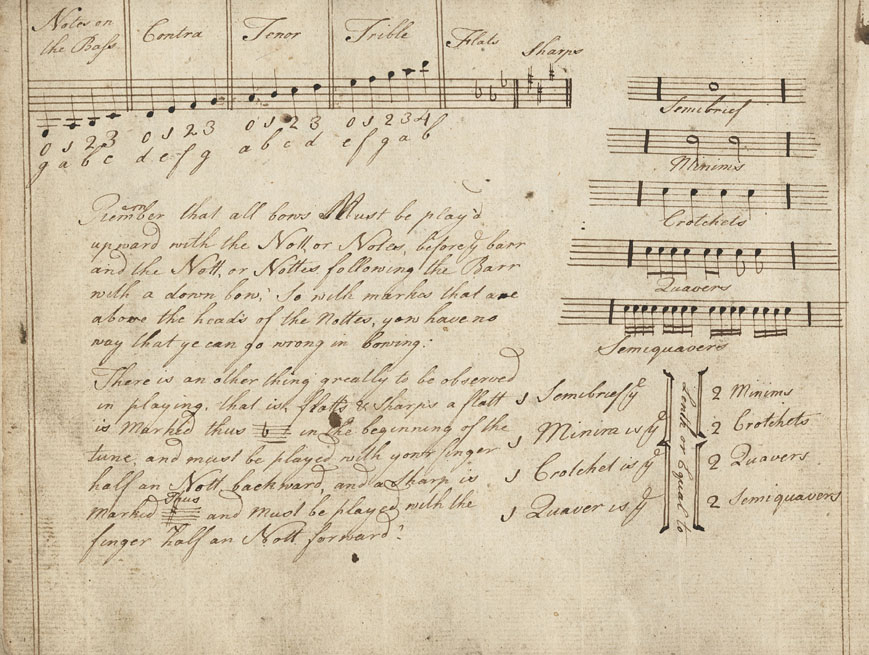 Notes on the Bass Contra Tenor Trible Flats Sharps
0 1 2 3 0 1 2 3 0 1 2 3 0 1 2 3 4
g a b c d e f g a b c d e f g a b
Remember that all bows Must be play'd
upward with the Nott, or Notes, before ye barr
and the Nott, or Nottes, following the Barr
with a down bow; So with marks that are
above the heads of the Nottes, you have no
way that ye can go wrong in bowing:
There is an other thing greatly to be observed
in playing, that is, flatts & sharps a flatt
is Marked thus b in the beginning of the
tune, and must be played with your finger
half an Nott backward, and a Sharp is
Marked Thus # and Must be played with the
finger half an Nott forward:
Semibrief
Minims
Crotchets
Quavers
Semiquavers
1 Semibrief ye 2 Minims
1 Minim is ye 2 Crotchets
1 Crotchet is ye 2 Quavers
1 Quaver is ye 2 Semiquavers
or Equal to